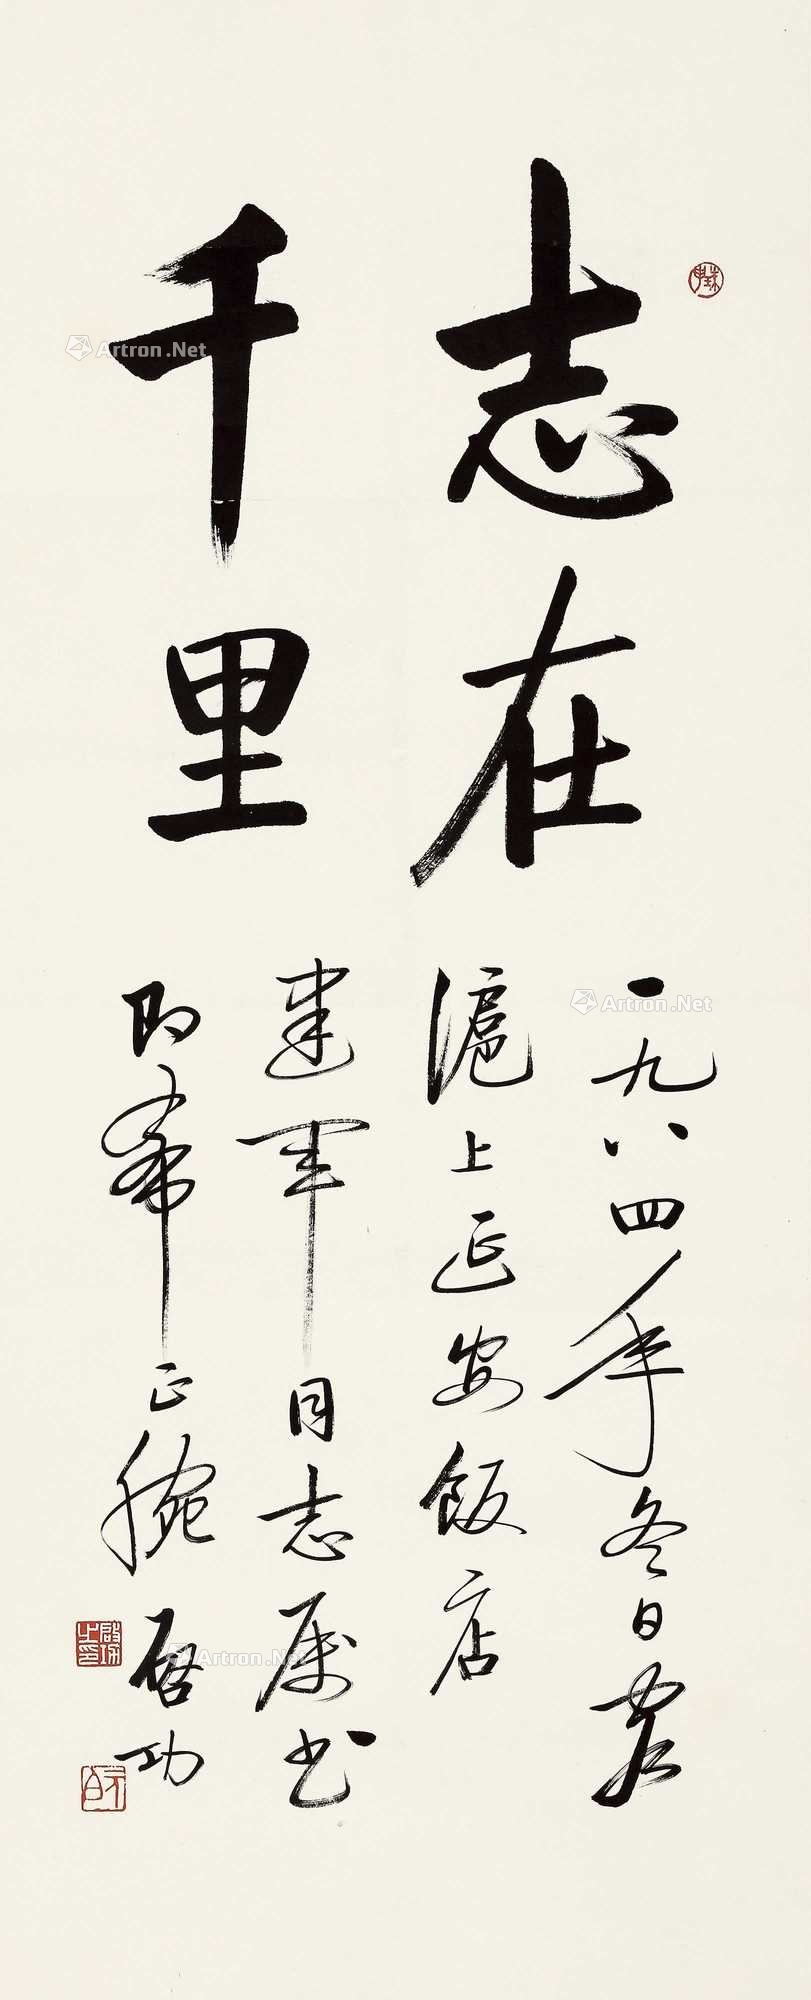 志在
千里
一九八四年冬日客
滬上延安飯店
建軍同志属書
即希正腕 启功
啟功之印
元白
Artron.Net
Artron.Net
Artron.Net